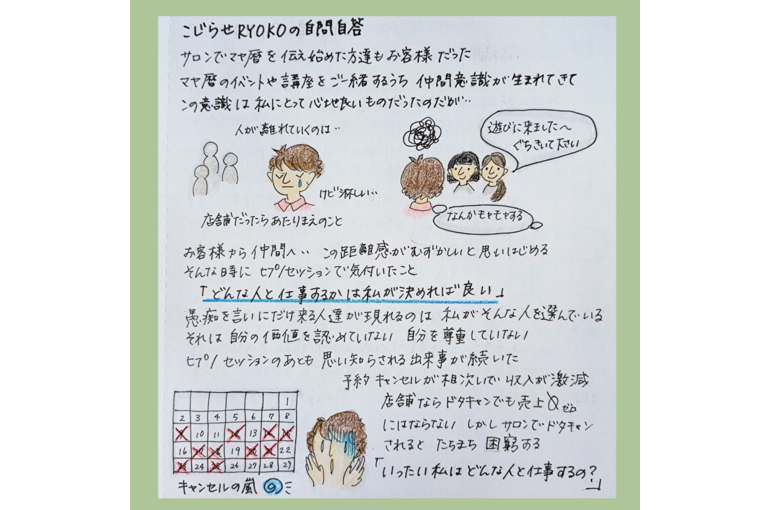 こじらせRYOKOの自問自答
サロンでマヤ暦を伝え始めた方達もお客様だった
マヤ暦のイベントや講座をご一緒するうち 仲間意識が生まれてきて
この意識は私にとって心地良いものだったのだが‥
人が離れていくのは‥
けど淋しい‥
店舗だったらあたりまえのこと
遊びに来ました〜
ぐちきいて下さい
なんかモヤモヤする
お客様から仲間へ‥ この距離感がむずかしいと思いはじめる
そんな時に ヒプノセッションで気付いたこと
「どんな人と仕事するかは私が決めれば良い」
愚痴を言いにだけ来る人達が現れるのは 私がそんな人を選んでいる
それは 自分の価値を認めていない 自分を尊重していない
ヒプノセッションのあとも 思い知らされる出来事が続いた
予約キャンセルが相次いで 収入が激減
店舗ならドタキャンでも売上0ゼロ
にはならない しかしサロンでドタキャン
されると たちまち 困窮する
「いったい私はどんな人と仕事するの?」
1
2 3 4 5 6 7 8
10 11 13
16 19 22
24 26 27 28 29
キャンセルの嵐